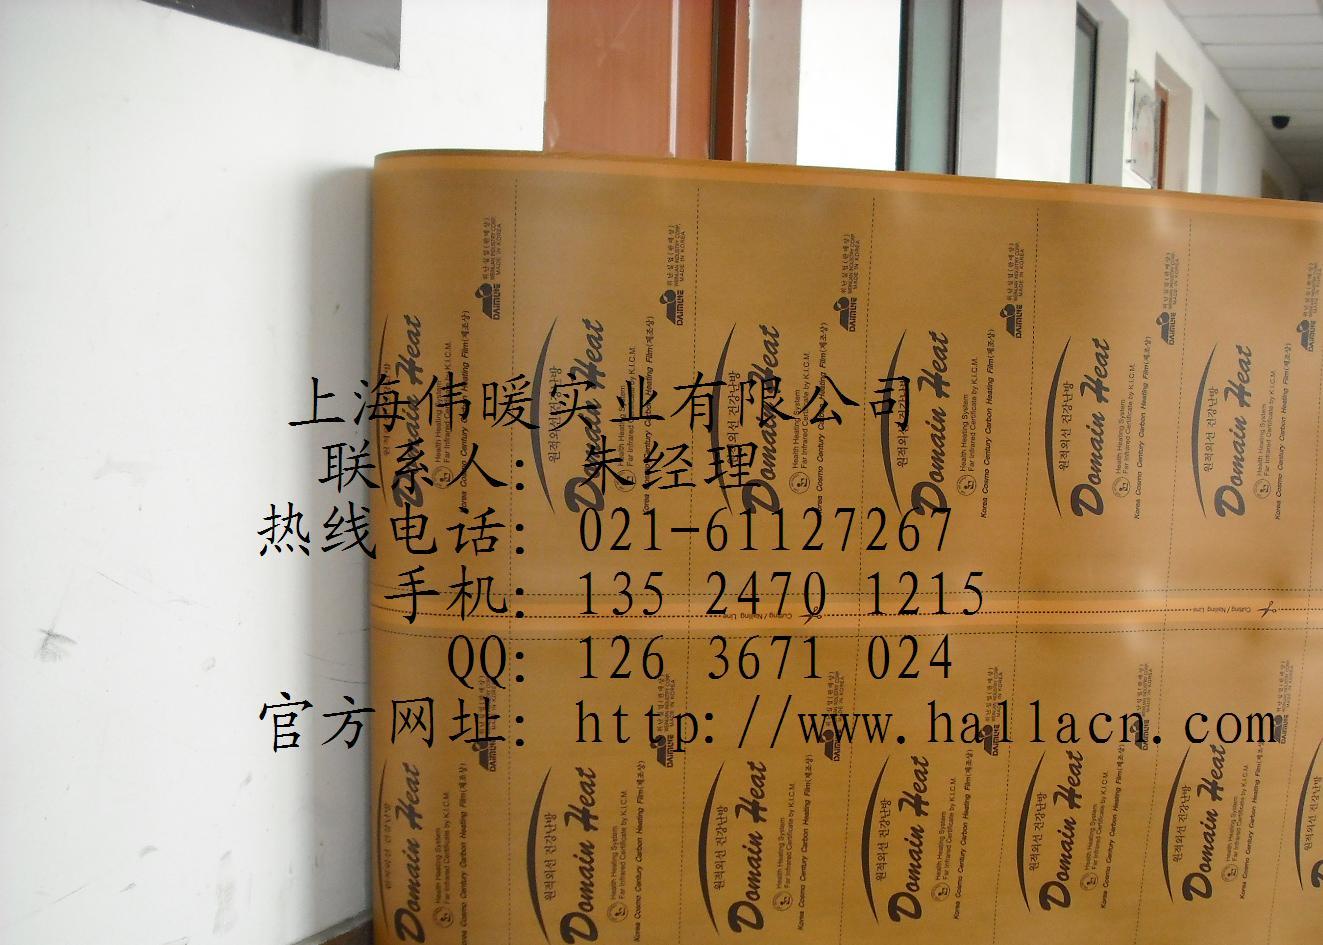 上海伟暖实业有限公司
联系人：朱经理
热线电话：021-61127267
手机：135 2470 1215
QQ：126 3671 024
官方网址：http://www.hallacn.com
원적외선 건강난방
Domain Heat
Health Heating System
Far Infrared Certificate by K.I.C.M.
Korea Cosmo Century Carbon Heating Film(제조상)
DAIMUNE
MADE IN KOREA
Cutting / Nailing Line